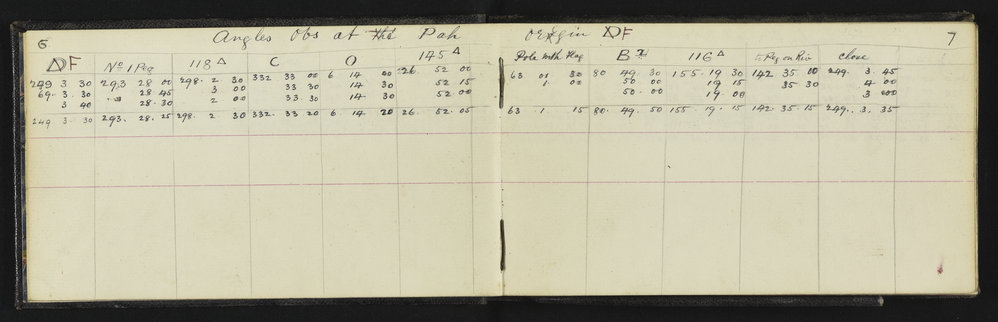 6 Angles Obs at the Pah origin ΔF 7
ΔF No 1 Peg 118 Δ C O 145 Δ Pole with Flag B 116 Δ Peg on Riv Close
249 3 30 293 28 00 298. 2 30 332 33 00 6 14 00 26 52 00 63 01 30 80 49. 30 155. 19 30 142 35 00 249. 3. 45
69. 3. 30 28 45 3 00 33 30 14 30 52 15 1 00 50. 00 19 15 35 30 4 00
3 40 28. 30 2 00 33 30 14 30 52 00 50. 00 19. 00 3 00
249 3. 30 293. 28. 25 298. 2 30 332. 33 20 6 14 20 26. 52. 05 63. 1 15 80. 49. 50 155. 19. 15 142. 35. 15 249. 3. 35